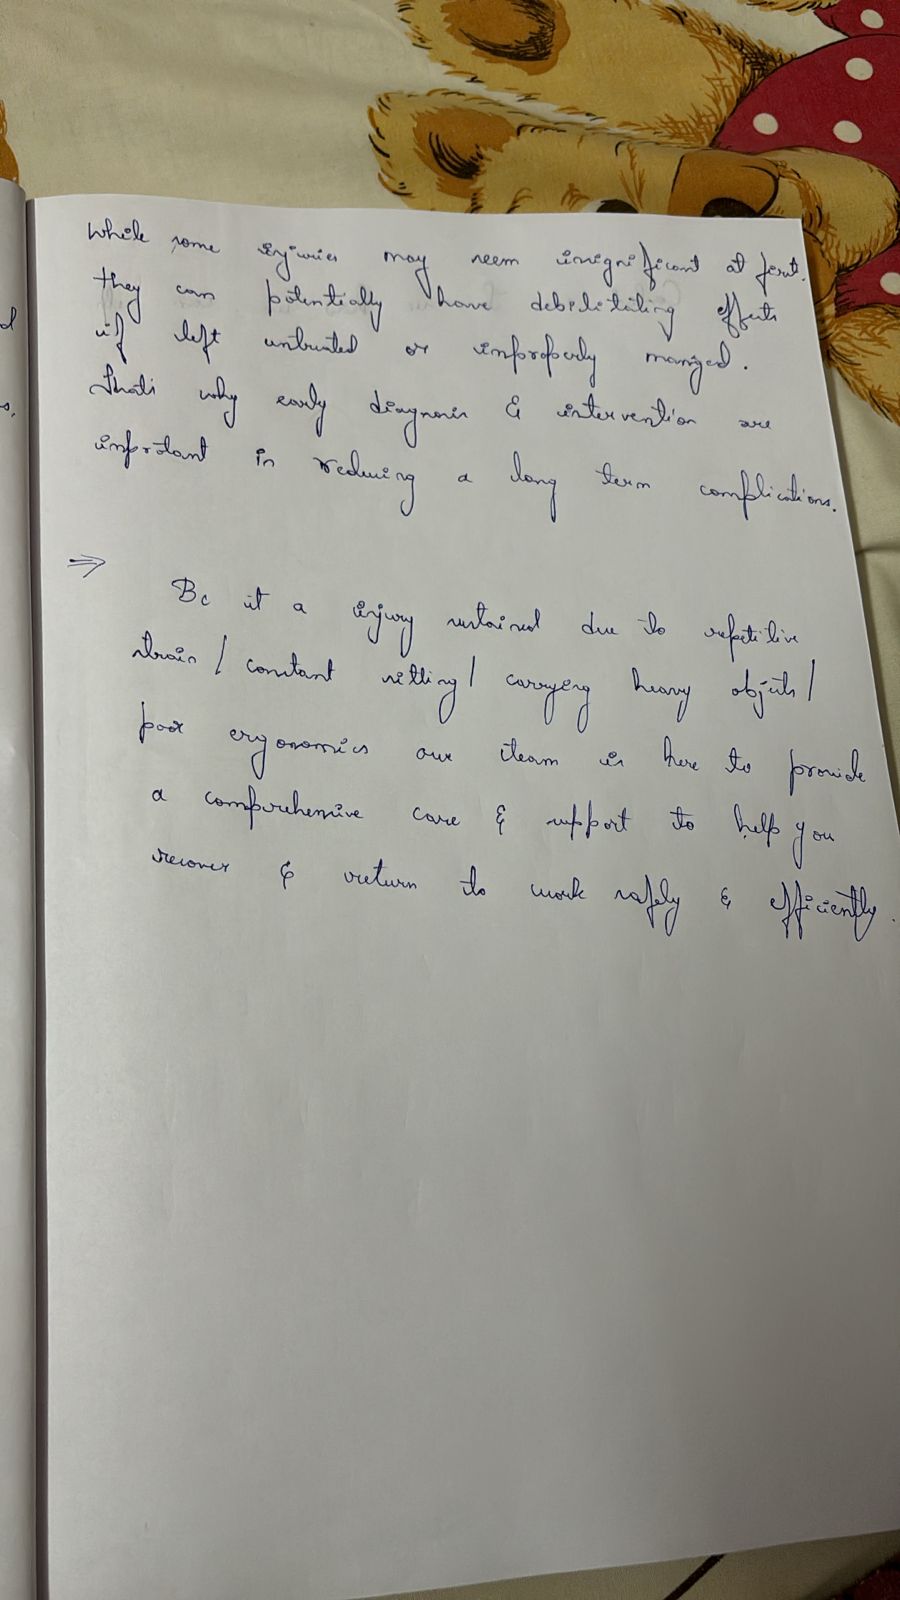 While some injuries may seem insignificant at first.
they can potentially have debilitating effects
if left untreated or improperly manged.
Thats why early diagnosis & intervention are
improtant in reducing a long term complications.
⇒
Be it a injury sustained due to repetitive
strain / constant sitting / carrying heavy objects /
poor ergonomics our team is here to provide
a comprehensive care & support to help you
recover & return to work safely & efficiently.